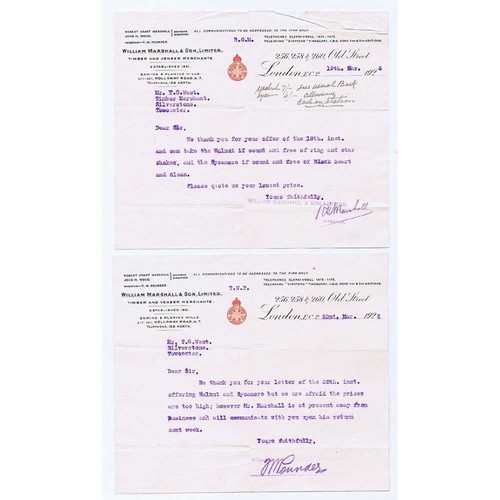 ROBERT GRANT MARSHALL, JOHN H. WOOD,
ALL COMMUNICATIONS TO BE ADDRESSED TO THE FIRM ONLY.
R.G.M.
TELEPHONES CLERKENWELL 1474-1475.
WILLIAM MARSHALL & SON, LIMITED.
TIMBER AND VENEER MERCHANTS
ESTABLISHED 1821.
SAWING & PLANING MILLS,
HOLLOWAY ROAD, N.7.
TELEPHONE, 155 NORTH.
256, 258 & 260, Old Street
London, E.C.2 19th. Mar. 1926
Mr. T.G.West.
Timber Merchant.
Silverstone.
Towcester.
Dear Sir,
We thank you for your offer of the 18th. inst.
and can take the Walnut if sound and free of ring and star
shakes, and the Sycamore if sound and free of Black heart
and clean.
Please quote us your lowest price.
Yours faithfully,
WILLIAM MARSHALL & SON
ROBERT GRANT MARSHALL, JOHN H. WOOD,
ALL COMMUNICATIONS TO BE ADDRESSED TO THE FIRM ONLY.
T.N.P.
TELEPHONES CLERKENWELL 1474-1475.
WILLIAM MARSHALL & SON, LIMITED.
TIMBER AND VENEER MERCHANTS.
ESTABLISHED 1821.
SAWING & PLANING MILLS,
HOLLOWAY ROAD, N.7.
TELEPHONE, 155 NORTH.
256, 258 & 260, Old Street
London, E.C.2 22nd. Mar. 1926
Mr. T.G.West.
Silverstone.
Towcester.
Dear Sir,
We thank you for your letter of the 20th. inst.
offering Walnut and Sycamore but we are afraid the prices
are too high; however Mr. Marshall is at present away from
Business and will communicate with you upon his return
next week.
Yours faithfully,